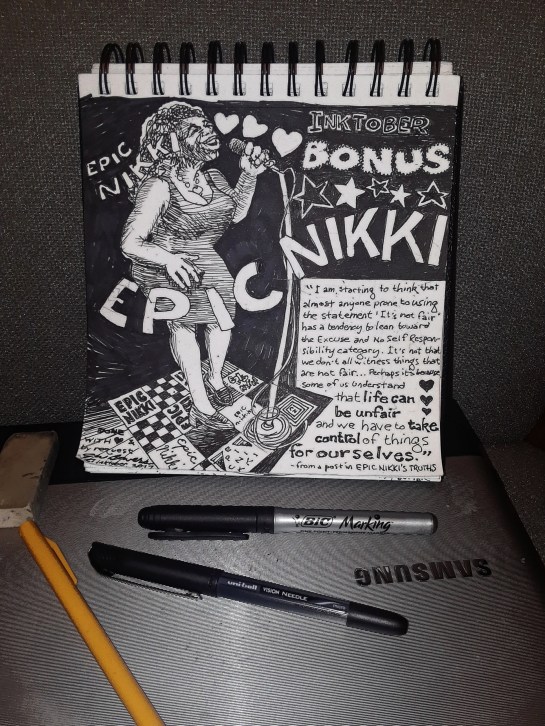 INKTOBER
BONUS
EPIC
NIKKI
NIKKI
EPIC
"I am starting to think that
almost anyone prone to using
the statement 'It's not fair'
has a tendency to lean toward
the Excuse and No Self Respon-
sibility category. It's not that
we don't all witness things that
are not fair... Perhaps it's because
some of us understand
that life can
be unfair
and we have to take
control of things
for ourselves."
-from a post in EPIC NIKKI'S TRUTHS
EPIC
NIKKI
EPIC
Epic
Nikki
EPIC
DONE
WITH ♥ &
by request
BIC Marking
uni-ball VISION NEEDLE
SAMSUNG